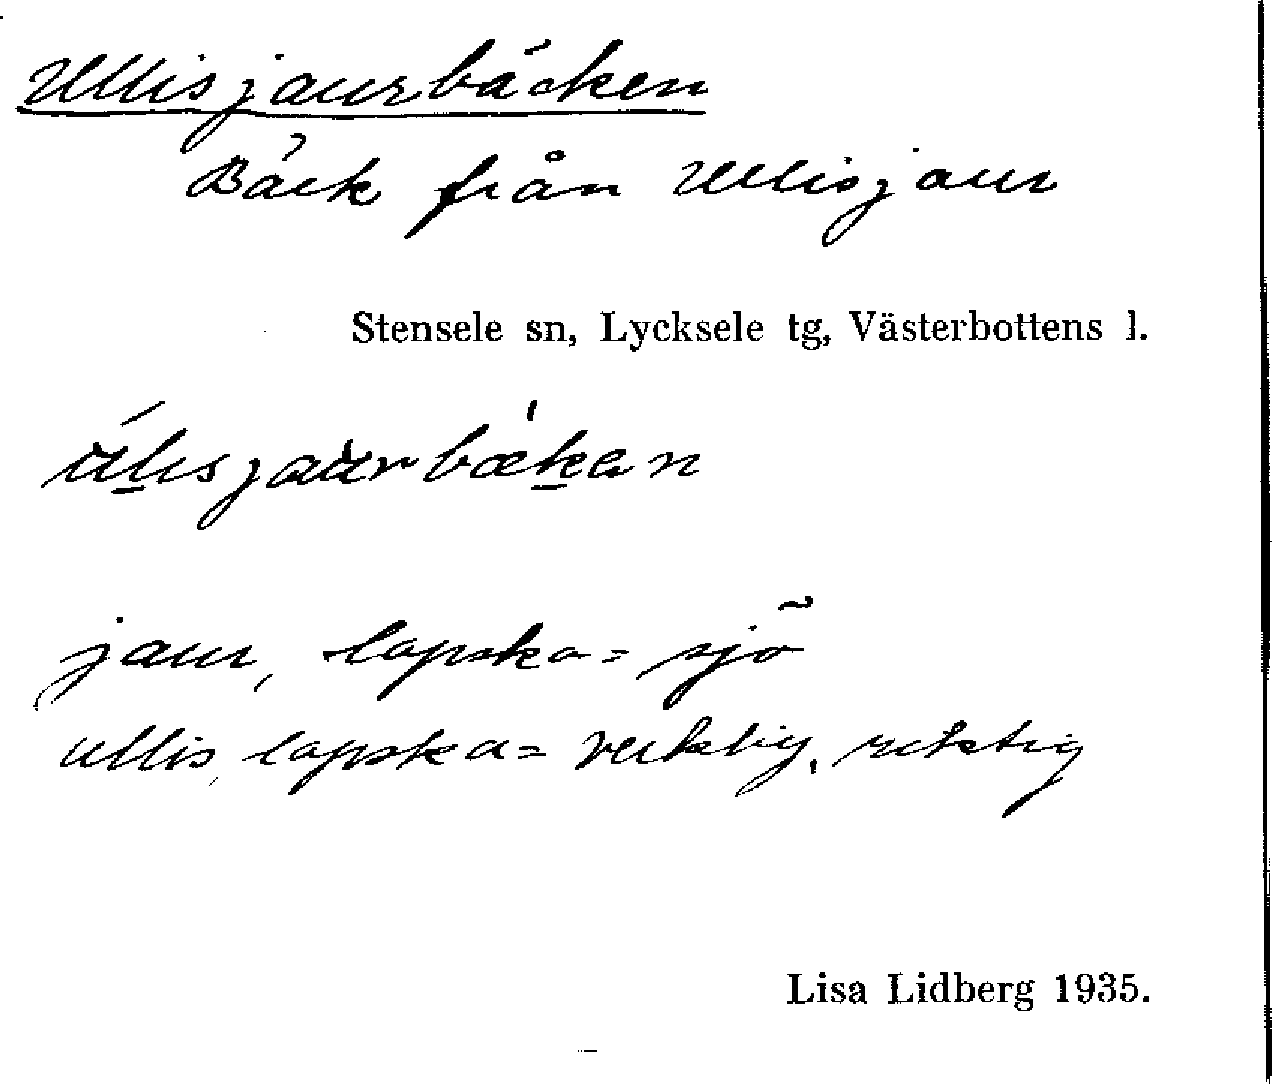 Ullisjaurbäcken
Bäck från Ullisjaur
Stensele sn, Lycksele tg, Västerbottens l.
úl̲isjau̇rbæ̍k̲an
jaur, lapska = sjö
ullis, lapska = verklig, riktig
Lisa Lidberg 1935.